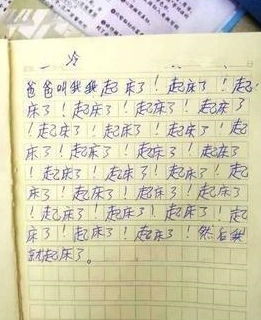 冷
爸爸叫我我起床了！起床了！起
床了！起床了！起床了！起床了
！起床了！起床了！起床了！起
床了！起床了！起床了！起床了
！起床了！起床了！起床了！起
床了！起床了！起床了！起床了
！起床了！起床了！起床了！起
床了！起床了！起床了！然后我
就起床了。